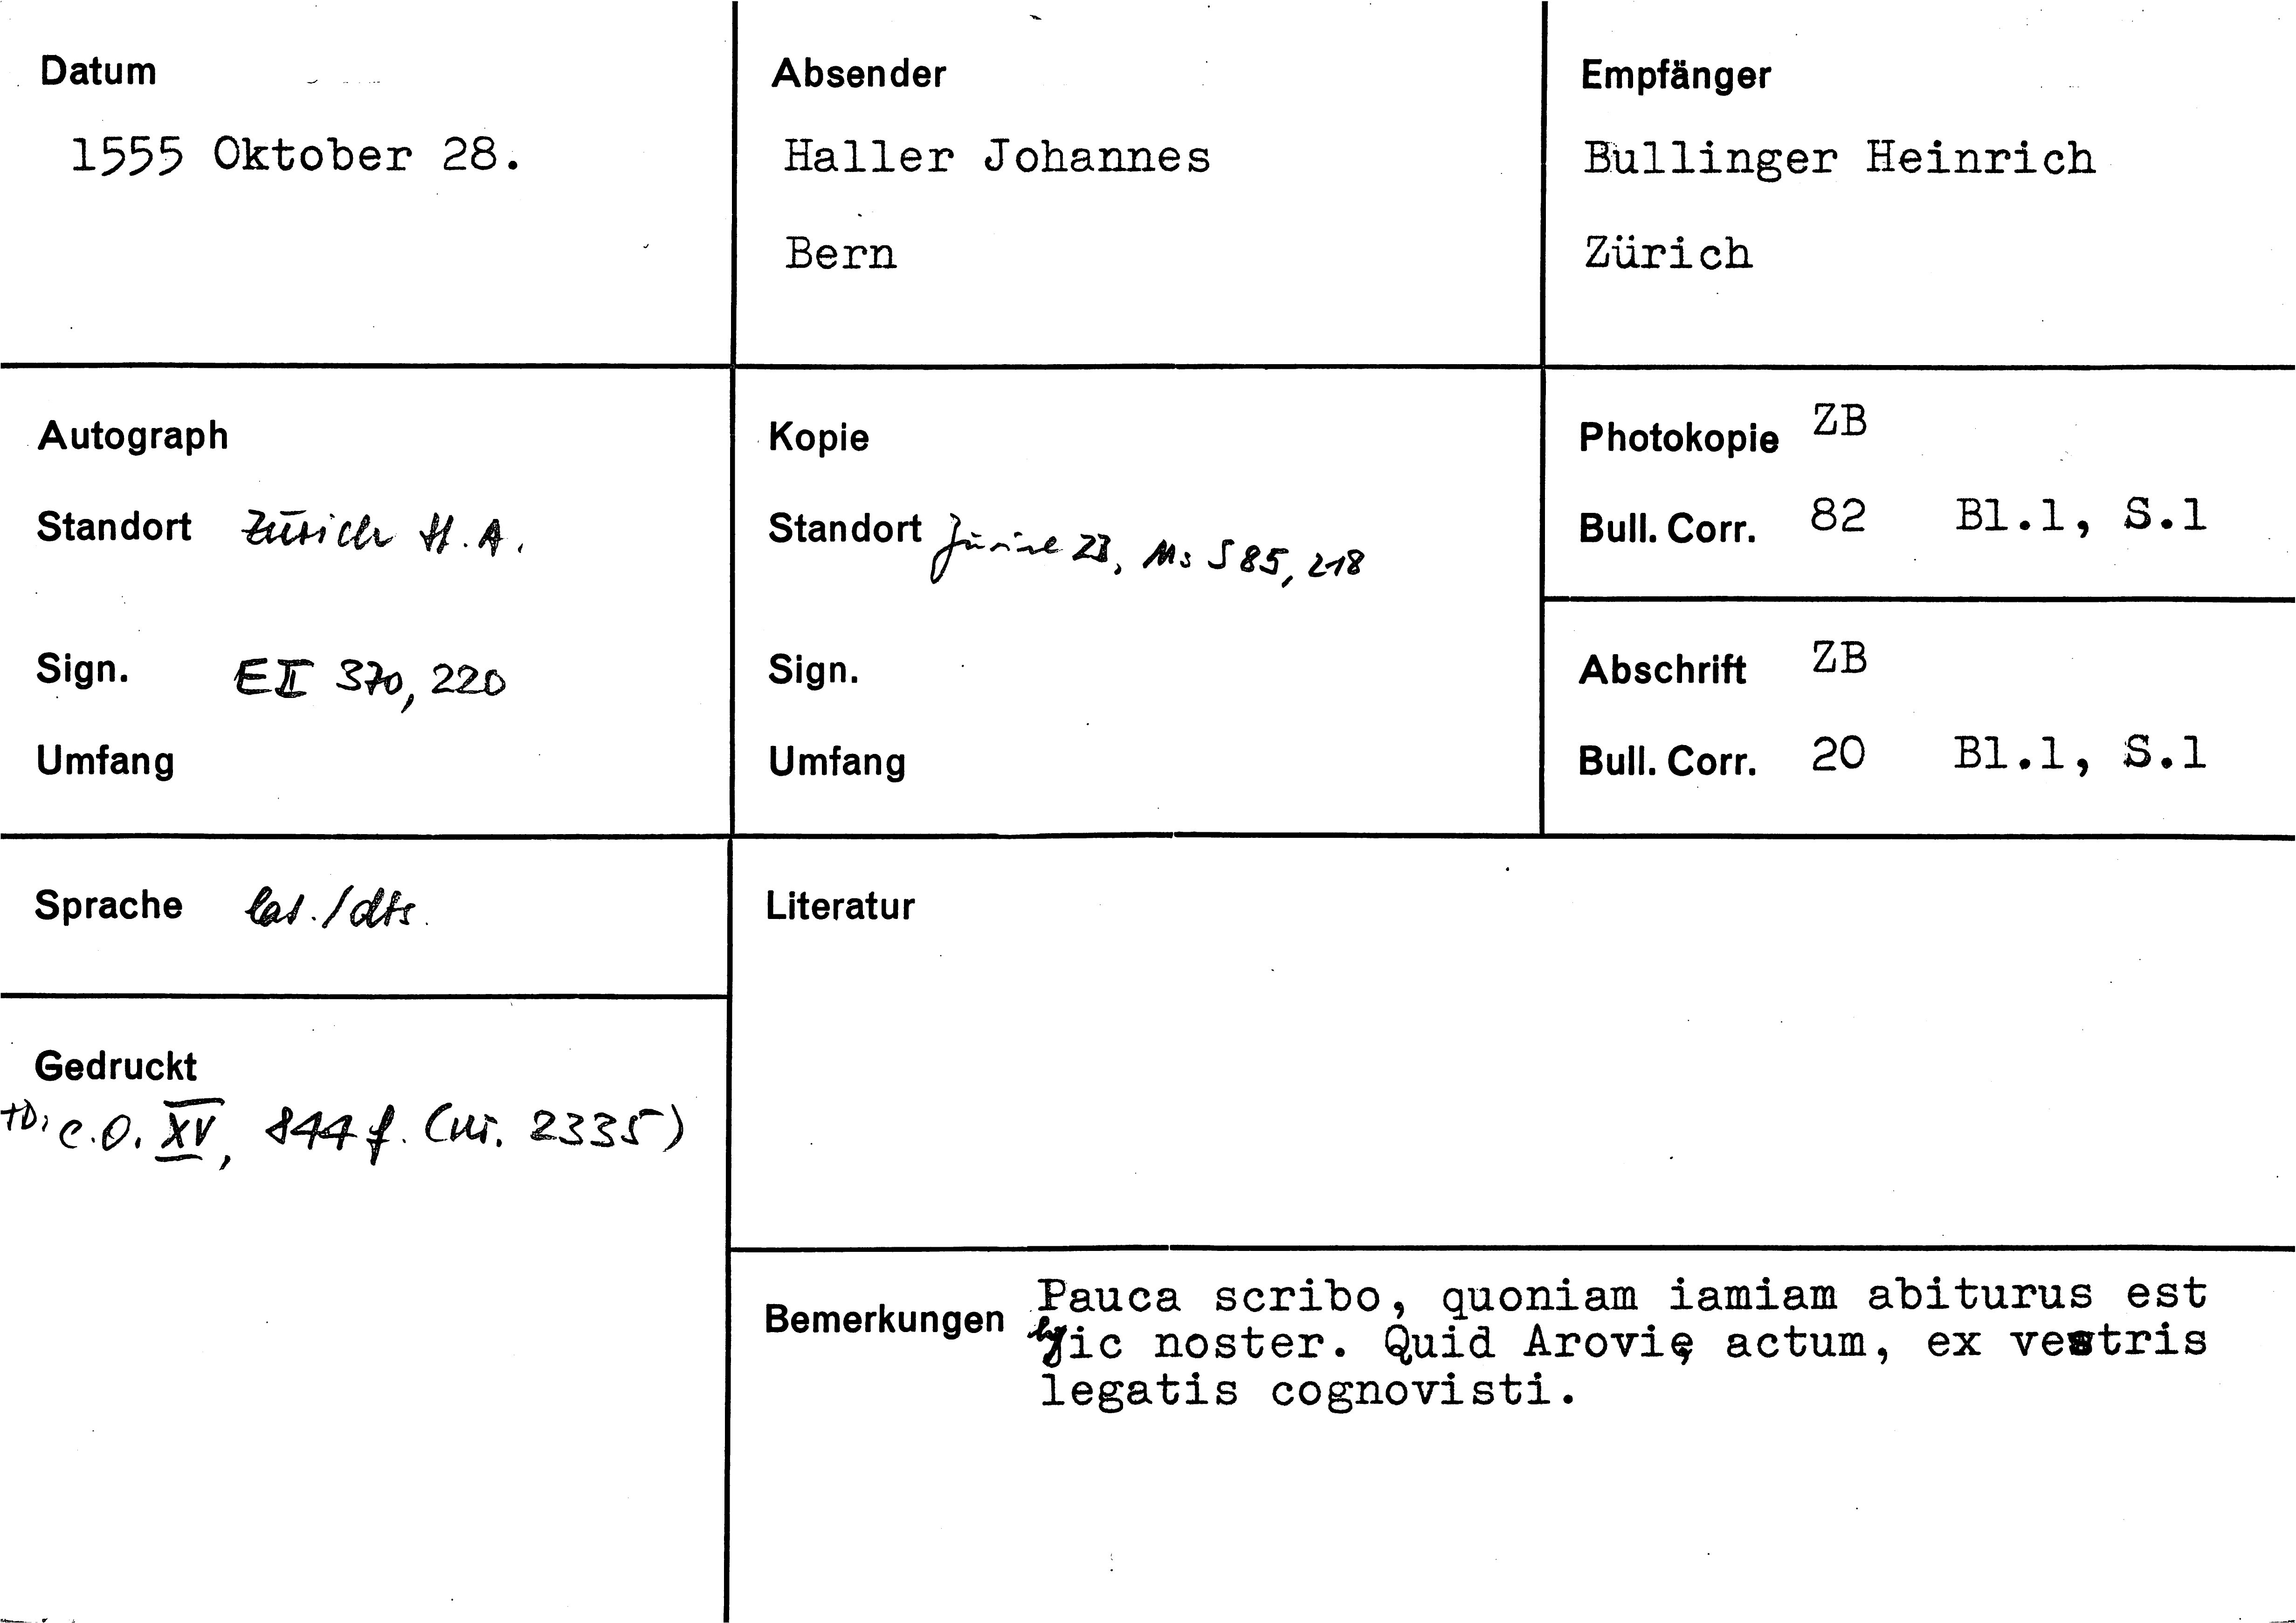 Datum
1555 Oktober 28.
Absender
Haller Johannes
Bern
Empfänger
Bullinger Heinrich
Zürich
Autograph
Standort Zürich St.A.
Sign. E II 370, 220
Umfang
Kopie
Standort Zürich ZB, Ms S 85, 218
Sign.
Umfang
Photokopie ZB
Bull. Corr. 82 Bl.1, S.1
Abschrift ZB
Bull. Corr. 20 Bl.1, S.1
Sprache lat./dts.
Gedruckt
C.O. XV, 844 f. (Nr. 2335)
Literatur
Bemerkungen Pauca scribo, quoniam iamiam abiturus est
hic noster. Quid Arovię actum, ex vestris
legatis cognovisti.